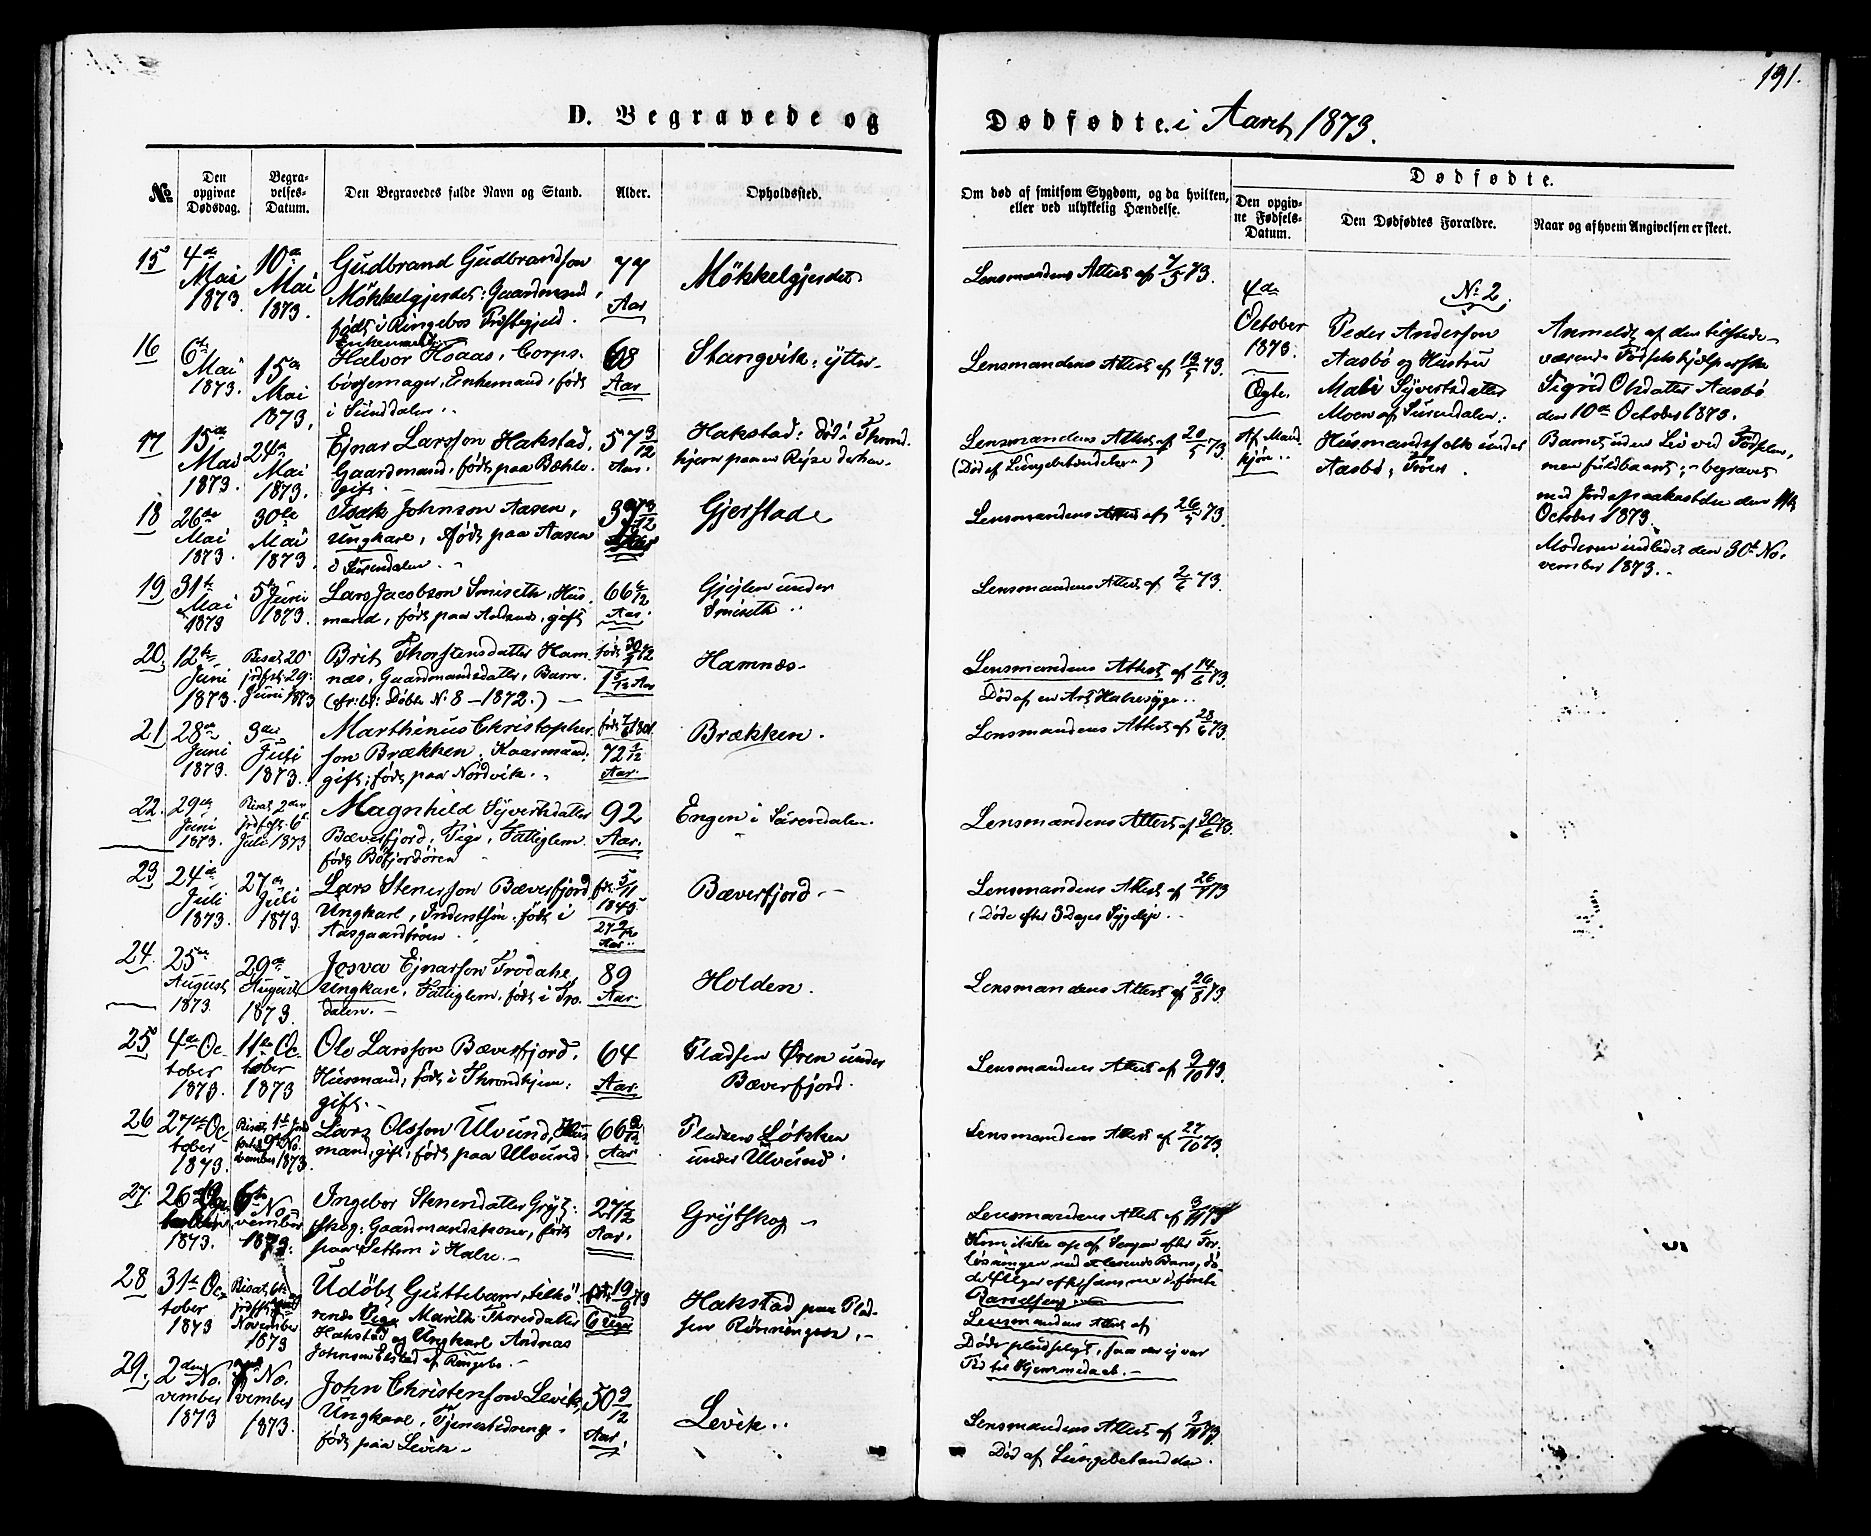 191.
D. Begravede og Dødfødte. i Aaret 1873.
No
Den opgivne Dødsdag.
Begravelses-Datum.
Den Begravedes fulde Navn og Stand.
Alder.
Opholdssted.
Om død af smitsom Sygdom, og da hvilken, eller ved ulykkelig Hændelse.
Dødfødte.
Den opgivne Fødsels-Datum.
Den Dødfødtes Forældre.
Naar og af hvem Angivelsen er skeet.
15
4de Mai 1873.
10de Mai 1873.
Gudbrand Gudbrandson
Mökkelgjerdet: Gaardmand,
født i Ringebos Præstegjeld.
Enkemand.
77 Aar
Mökkelgjerdet
Lensmandens Attest af 7/5 73.
16
6te Mai 1873.
15de Mai 1873.
Halvor Hsaas, Corps-
bössemager, Enkemand, født
i Sunddalen.
68 Aar
Stangvik: ytter
Lensmandens Attest af 13/5 73.
17
15de Mai 1873.
24de Mai 1873.
Ejnar Larsson Hakstad,
Gaardmand, født paa Bække
gift.
57 3/12 Aar.
Hakstad: død i Thrond-
hjem paa en Rejse derhen.
Lensmandens Attest af 20/5 73.
(Död af Lungebetændelse)
18
26de Mai 1873.
30te Mai 1873.
Isak Johnson Aasen,
Ungkarl, født paa Aasen
i Surendalen.
Gjerstade
Lensmandens Attest af 26/5 73.
19
31te Mai 1873
5te Juni 1873.
Lars Jacobson Smiseth, Hus-
mand, født paa , gift
66 6/12 Aar.
Gjejlen under
Smiseth
Lensmandens Attest af 2/6 73.
20.
12te Juni 1873.
Bisat 20 jordfæst 29 Juni 1873
Brit Thorstensdatter Ham-
næs, Gaardmandsdatter, Barn.
(cfr. lit: Döbte No 8 - 1872.)
født 30/3 72
1 3/12 Aar
Hamnæs
Lensmandens Attest af 14/6 73.
Död af en Art Halssyge.
21
28de Juni 1873.
3die Juli 1873.
Marthinus Christopher-
son Brækken, Kaarmand,
gift; født paa Nordvik.
72 Aar.
Brækken.
Lensmandens Attest af 28/6 73.
22.
29de Juni 1873.
Bisat 2den jordfæst 6te Juli 1873
Magnhild Syvertsdatter
Bæverfjord, Pige, Fattiglem.
født Böfjordören
92 Aar.
Engen i Surendalen.
Lensmandens Attest af 30/6 73.
23
24de Juli 1873.
27de Juli 1873.
Lars Stenerson Bæverfjord
Ungkarl, Inderstsön, født i
Aasgaardtröen
født 5/11 1845
27 Aar
Bæverfjord.
Lensmandens Attest af 26/7 73
(Döde efter 3 Dages Sygeleje.
24.
25de August 1873.
29de August 1873.
Josva Ejnarson Trodahl,
Ungkarl, Fattiglem, født i Tro-
dalen.
89 Aar.
Holden.
Lensmandens Attest af 26/8 73.
25
4de October 1873.
11te October 1873
Ole Larsson Bæverfjord,
Husmand, født i Throndhjem:
gift.
64 Aar.
Pladsen Øren under
Bæverfjord.
Lensmandens Attest af 9/10 73.
26
27de October 1873.
Bisat 1te 9de November 1873.
Lars Olsson Ulvund, Hus-
mand, gift, født paa Ulvund
66 Aar
Pladsen Løkken
under Ulvund.
Lensmandens Attest af 27/10 73.
27.
26 1873.
6te November 1873.
Ingebor Stenersdatter Gryt-
skog: Gaardmandskone, født
paa Settem i Halse.
27 Aar.
Grytskog
Lensmandens Attest af 3/11 73
Kom ikke op af Sengen efter For-
lösningen med et levende Barn, dö-
de Uger efter samme i
Barselseng.
28
31te October 1873
Bisat 6te November 1873
Udöbt Guttebarn, tilhö-
rende Pige Marith Thoresdatter
Hakstad og Ungkarl Andreas
Johnson Elstad af Ringebo.
født 19/9 73
6 Uger
Hakstad paa Plad-
sen Rönningen.
Lensmandens Attest af
Döde pludseligt, saa der ej var
Tid til Hjemmedaab.
29.
2den November 1873
November 1873.
John Christenson Levik,
Ungkarl, Tjenestedreng.
født paa Levik
50 9/12 Aar.
Levik.
Lensmandens Attest af 3/11 73.
Død af Lungebetændelse.
4de October 1873.
Ægte.
Af Mandkjön.
No 2.
Peder Anderson
Aasbö og Hustru
Mali Syvertsdatter
Moen af Surendalen:
Husmandsfolk under
Aasbö, .
Anmeldt af den tilstede-
værende Födselshjælperske
Sigrid Olsdatter Aasbö
den 10de October 1873.
Barnet uden Liv ved Födselen,
men fuldbaaret; begravet
med Jordspaakastelse den
October 1873.
Moderen indledet den 30te No-
vember 1873.